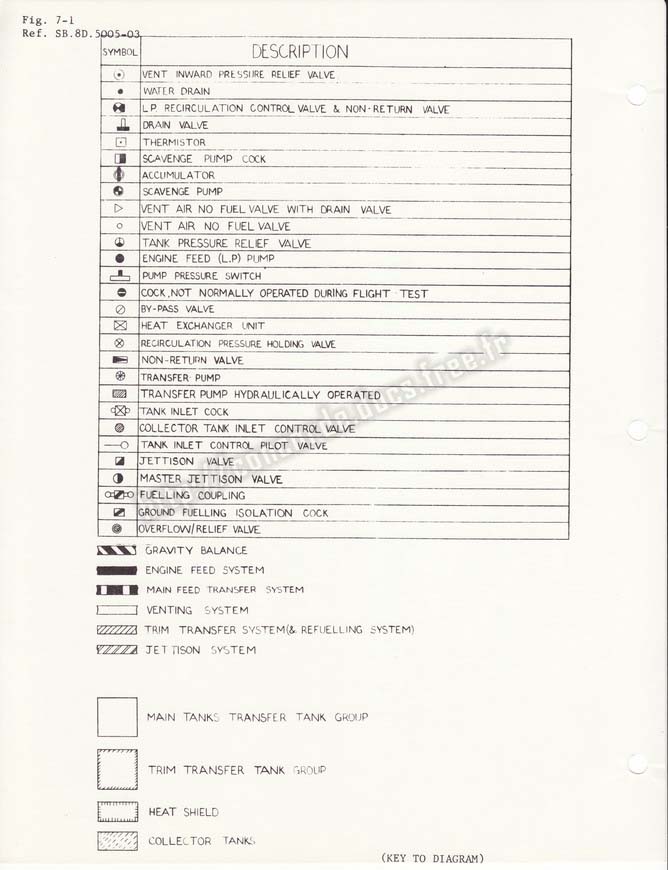 Fig. 7-1
Ref. SB.8D.5005-03
SYMBOL DESCRIPTION
VENT INWARD PRESSURE RELIEF VALVE
WATER DRAIN
L.P. RECIRCULATION CONTROL VALVE & NON-RETURN VALVE
DRAIN VALVE
THERMISTOR
SCAVENGE PUMP COCK
ACCUMULATOR
SCAVENGE PUMP
VENT AIR NO FUEL VALVE WITH DRAIN VALVE
VENT AIR NO FUEL VALVE
TANK PRESSURE RELIEF VALVE
ENGINE FEED (L.P) PUMP
PUMP PRESSURE SWITCH
COCK, NOT NORMALLY OPERATED DURING FLIGHT TEST
BY-PASS VALVE
HEAT EXCHANGER UNIT
RECIRCULATION PRESSURE HOLDING VALVE
NON-RETURN VALVE
TRANSFER PUMP
TRANSFER PUMP HYDRAULICALLY OPERATED
TANK INLET COCK
COLLECTOR TANK INLET CONTROL VALVE
TANK INLET CONTROL PILOT VALVE
JETTISON VALVE
MASTER JETTISON VALVE
FUELLING COUPLING
GROUND FUELLING ISOLATION COCK
OVERFLOW/RELIEF VALVE
GRAVITY BALANCE
ENGINE FEED SYSTEM
MAIN FEED TRANSFER SYSTEM
VENTING SYSTEM
TRIM TRANSFER SYSTEM(& REFUELLING SYSTEM)
JETTISON SYSTEM
MAIN TANKS TRANSFER TANK GROUP
TRIM TRANSFER TANK GROUP
HEAT SHIELD
COLLECTOR TANKS
(KEY TO DIAGRAM)